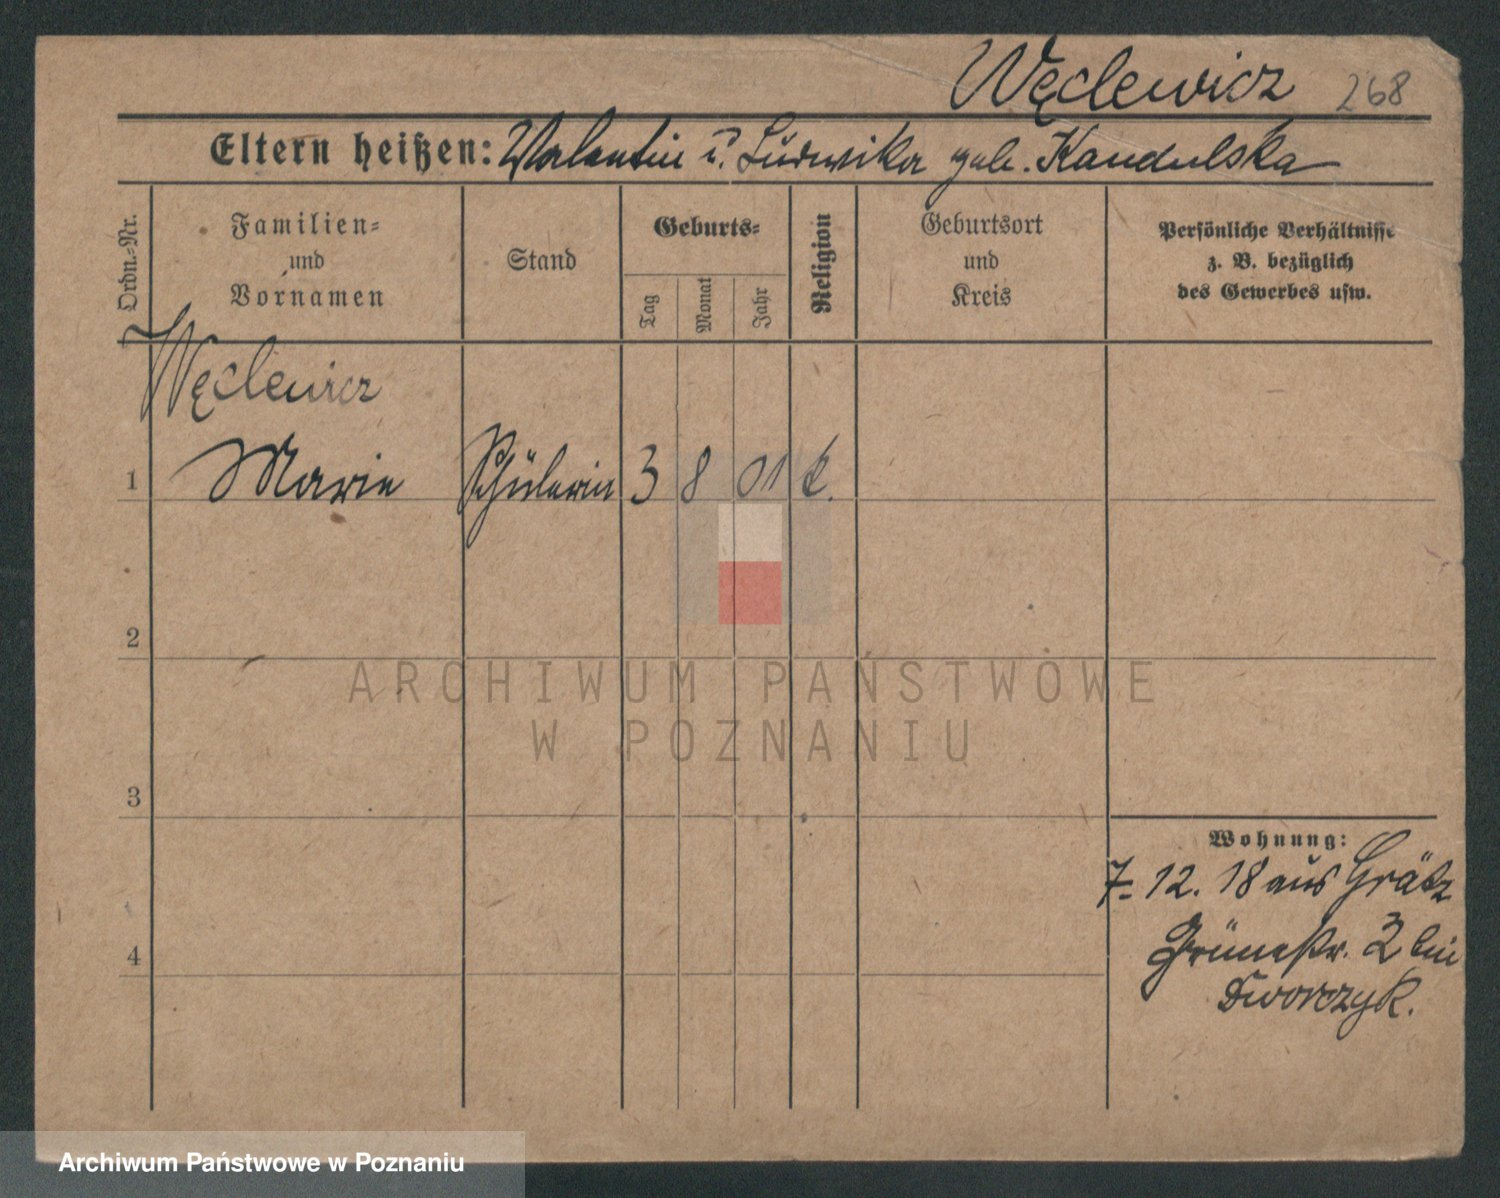 Węclewicz 268
Eltern heißen: Valentin u. Ludwika geb. Kandulska
Ordn.-Nr.
Familien-
und
Vornamen
Stand
Geburts-
Tag
Monat
Jahr
Religion
Geburtsort
und
Kreis
Persönliche Verhältnisse
z. B. bezüglich
des Gewerbes usw.
Węclewicz
1 Marie Schülerin 3 8 01 k.
2
3
4
Wohnung:
7. 12. 18 aus Grätz
Grünestr. 2 bei
Dworczyk.
ARCHIWUM PAŃSTWOWE
W POZNANIU
Archiwum Państwowe w Poznaniu